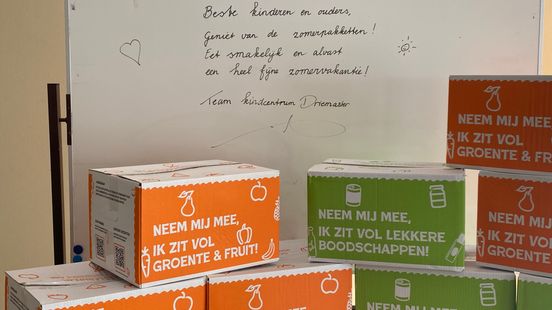 Beste kinderen en ouders,
Geniet van de zomerpakketten!
Eet smakelijk en alvast
een heel fijne zomervakantie!
Team kindcentrum Driemaster
NEEM MIJ MEE,
IK ZIT VOL
GROENTE & FRUIT!
NEEM MIJ MEE,
IK ZIT VOL LEKKERE
BOODSCHAPPEN!
NEEM MIJ MEE,
IK ZIT VOL
GROENTE & FRU
NEEM MIJ MEE,
IK ZIT VOL
GROENTE & FRUIT!
NEEM MIJ MEE,
NEEM MIJ MEE,
NEEM MIJ MEE,